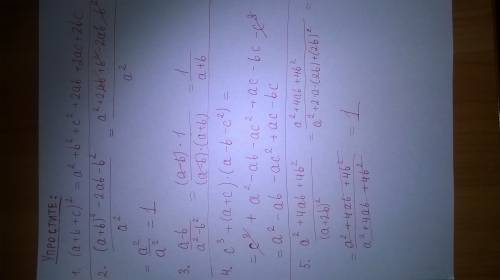 Упростите:
1. (a+b+c)² = a²+b²+c²+2ab+2ac+2bc
2. ((a+b)²-2ab-b²)/a² = (a²+2ab+b²-2ab-b²)/a²
= a²/a² = 1
3. (a-b)/(a²-b²) = ((a-b)·1)/((a-b)·(a+b)) = 1/(a+b)
4. c³+(a+c)·(a-b-c²) =
= c³+a²-ab-ac²+ac-bc-c³
= a²-ab-ac²+ac-bc
5. (a²+4ab+4b²)/(a+2b)² = (a²+4ab+4b²)/(a²+2·a·(2b)+(2b)²) =
= (a²+4ab+4b²)/(a²+4ab+4b²) = 1